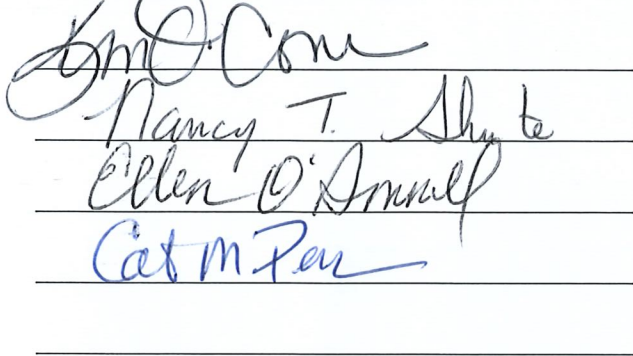 Kim O'Con
Nancy T. Shute
Ellen O'Donnell
Cat M